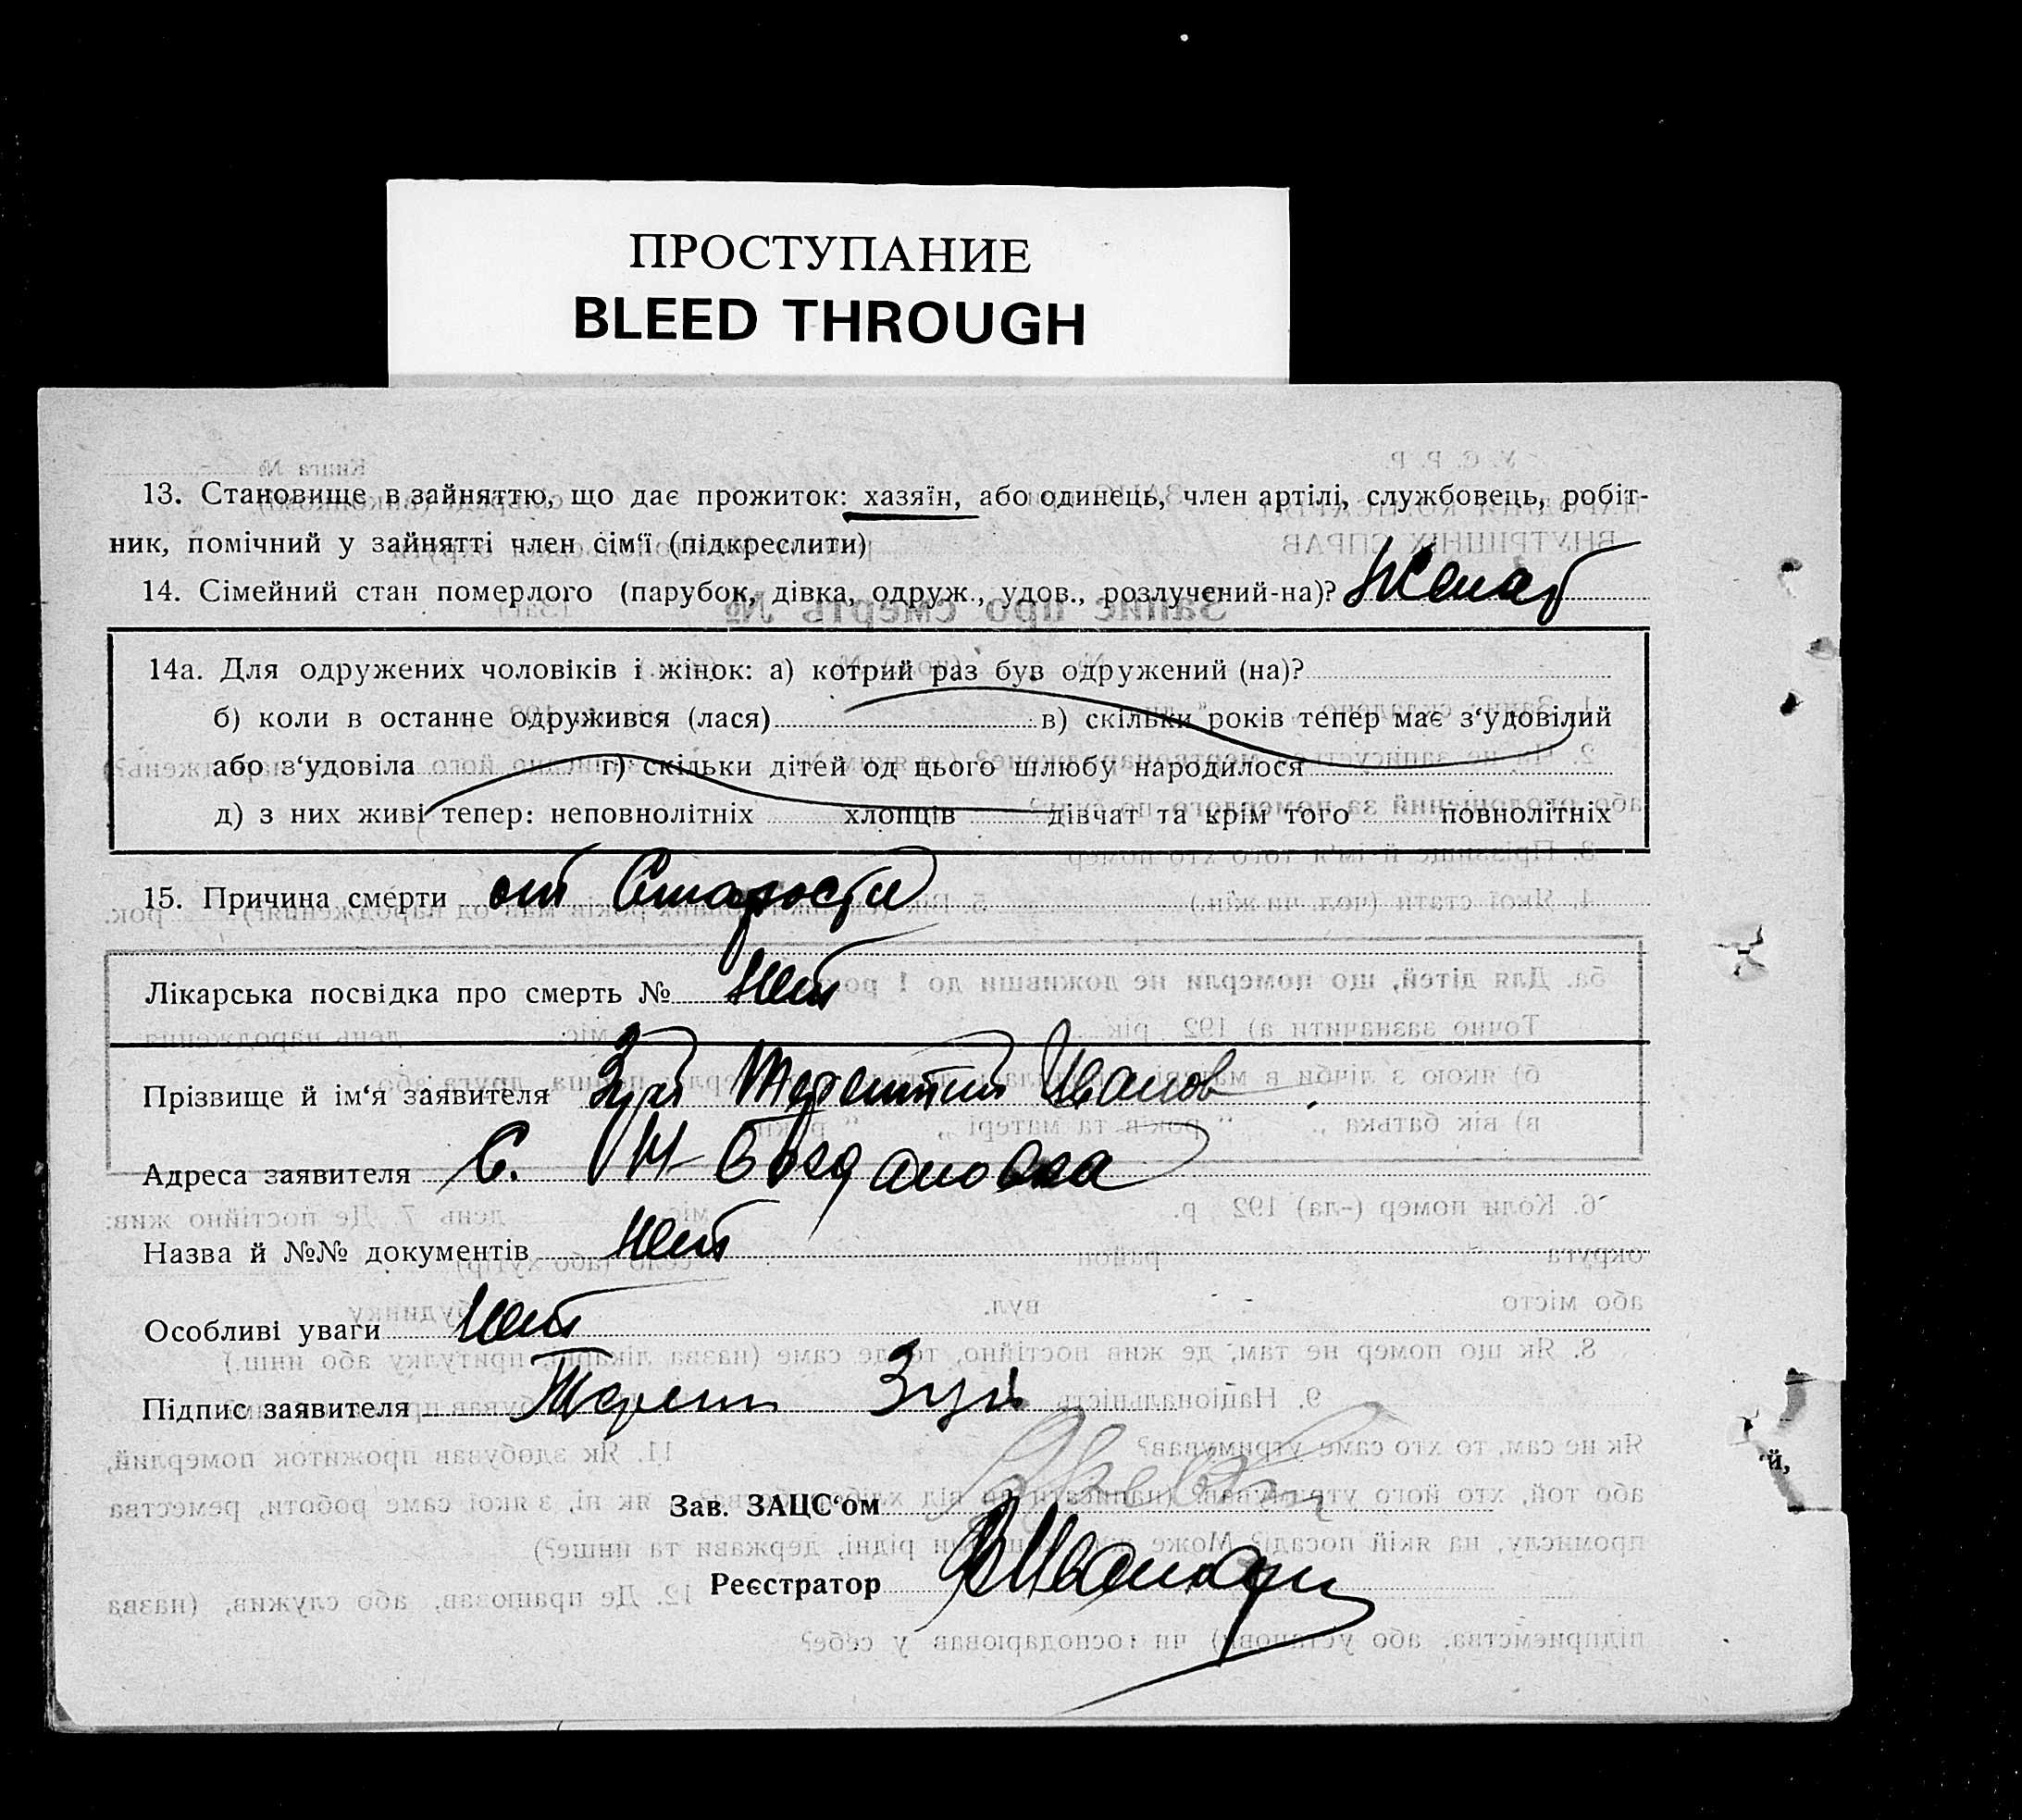 ПРОСТУПАНИЕ
BLEED THROUGH
13. Становище в зайняттю, що дає прожиток: хазяїн, або одинець, член артілі, службовець, робіт-
ник, помічний у зайнятті член сім'ї (підкреслити)
14. Сімейний стан померлого (парубок, дівка, одруж., удов., розлучений-на)? Женат
14а. Для одружених чоловіків і жінок: а) котрий раз був одружений (на)?
б) коли в останнє одружився (лася) в) скільки років тепер має з'удовілий
або з'удовіла г) скільки дітей од цього шлюбу народилося
д) з них живі тепер: неповнолітніх хлопців дівчат та крім того повнолітніх
15. Причина смерти от Старости
Лікарська посвідка про смерть № Нет
Прізвище й ім'я заявителя Зуй Терентий Иванов
Адреса заявителя С. Н-Богдановка
Назва й №№ документів Нет
Особливі уваги Нет
Підпис заявителя Терен Зуй
Зав. ЗАЦС'ом
Реєстратор
й,